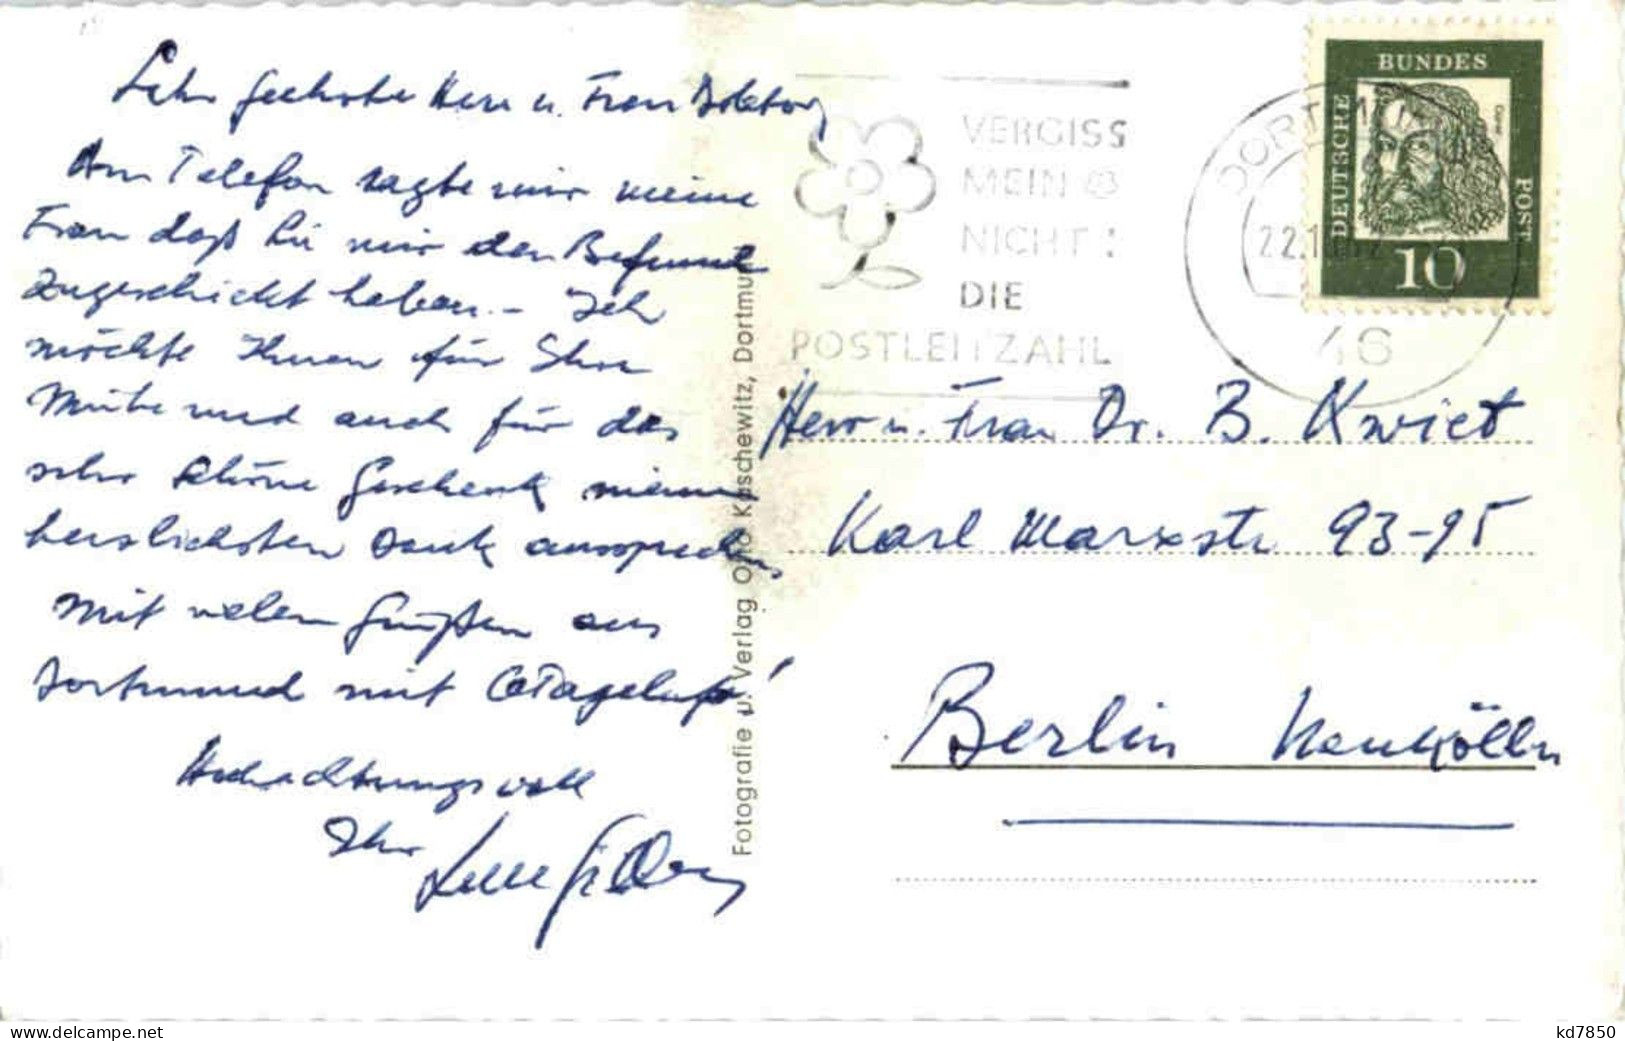 Sehr geehrte Herr u. Frau Doktor,
Am Telefon sagte mir meine
Frau daß Sie mir den Befund
zugeschickt haben. – Ich
möchte Ihnen für Ihre
Mühe und auch für das
sehr schöne Geschenk meinen
herzlichsten Dank aussprechen
Mit vielen Grüßen aus
Dortmund mit
Hochachtungsvoll
Ihr
Fotografie u. Verlag Otto Kaschewitz, Dortmund
VERGISS
MEIN
NICHT:
DIE
POSTLEITZAHL
DORTMUND
22.1
46
BUNDES
DEUTSCHE
POST
10
Herr u. Frau Dr. B. Kwiet
Karl Marxstr 93-95
Berlin Neukölln
www.delcampe.net
kd7850